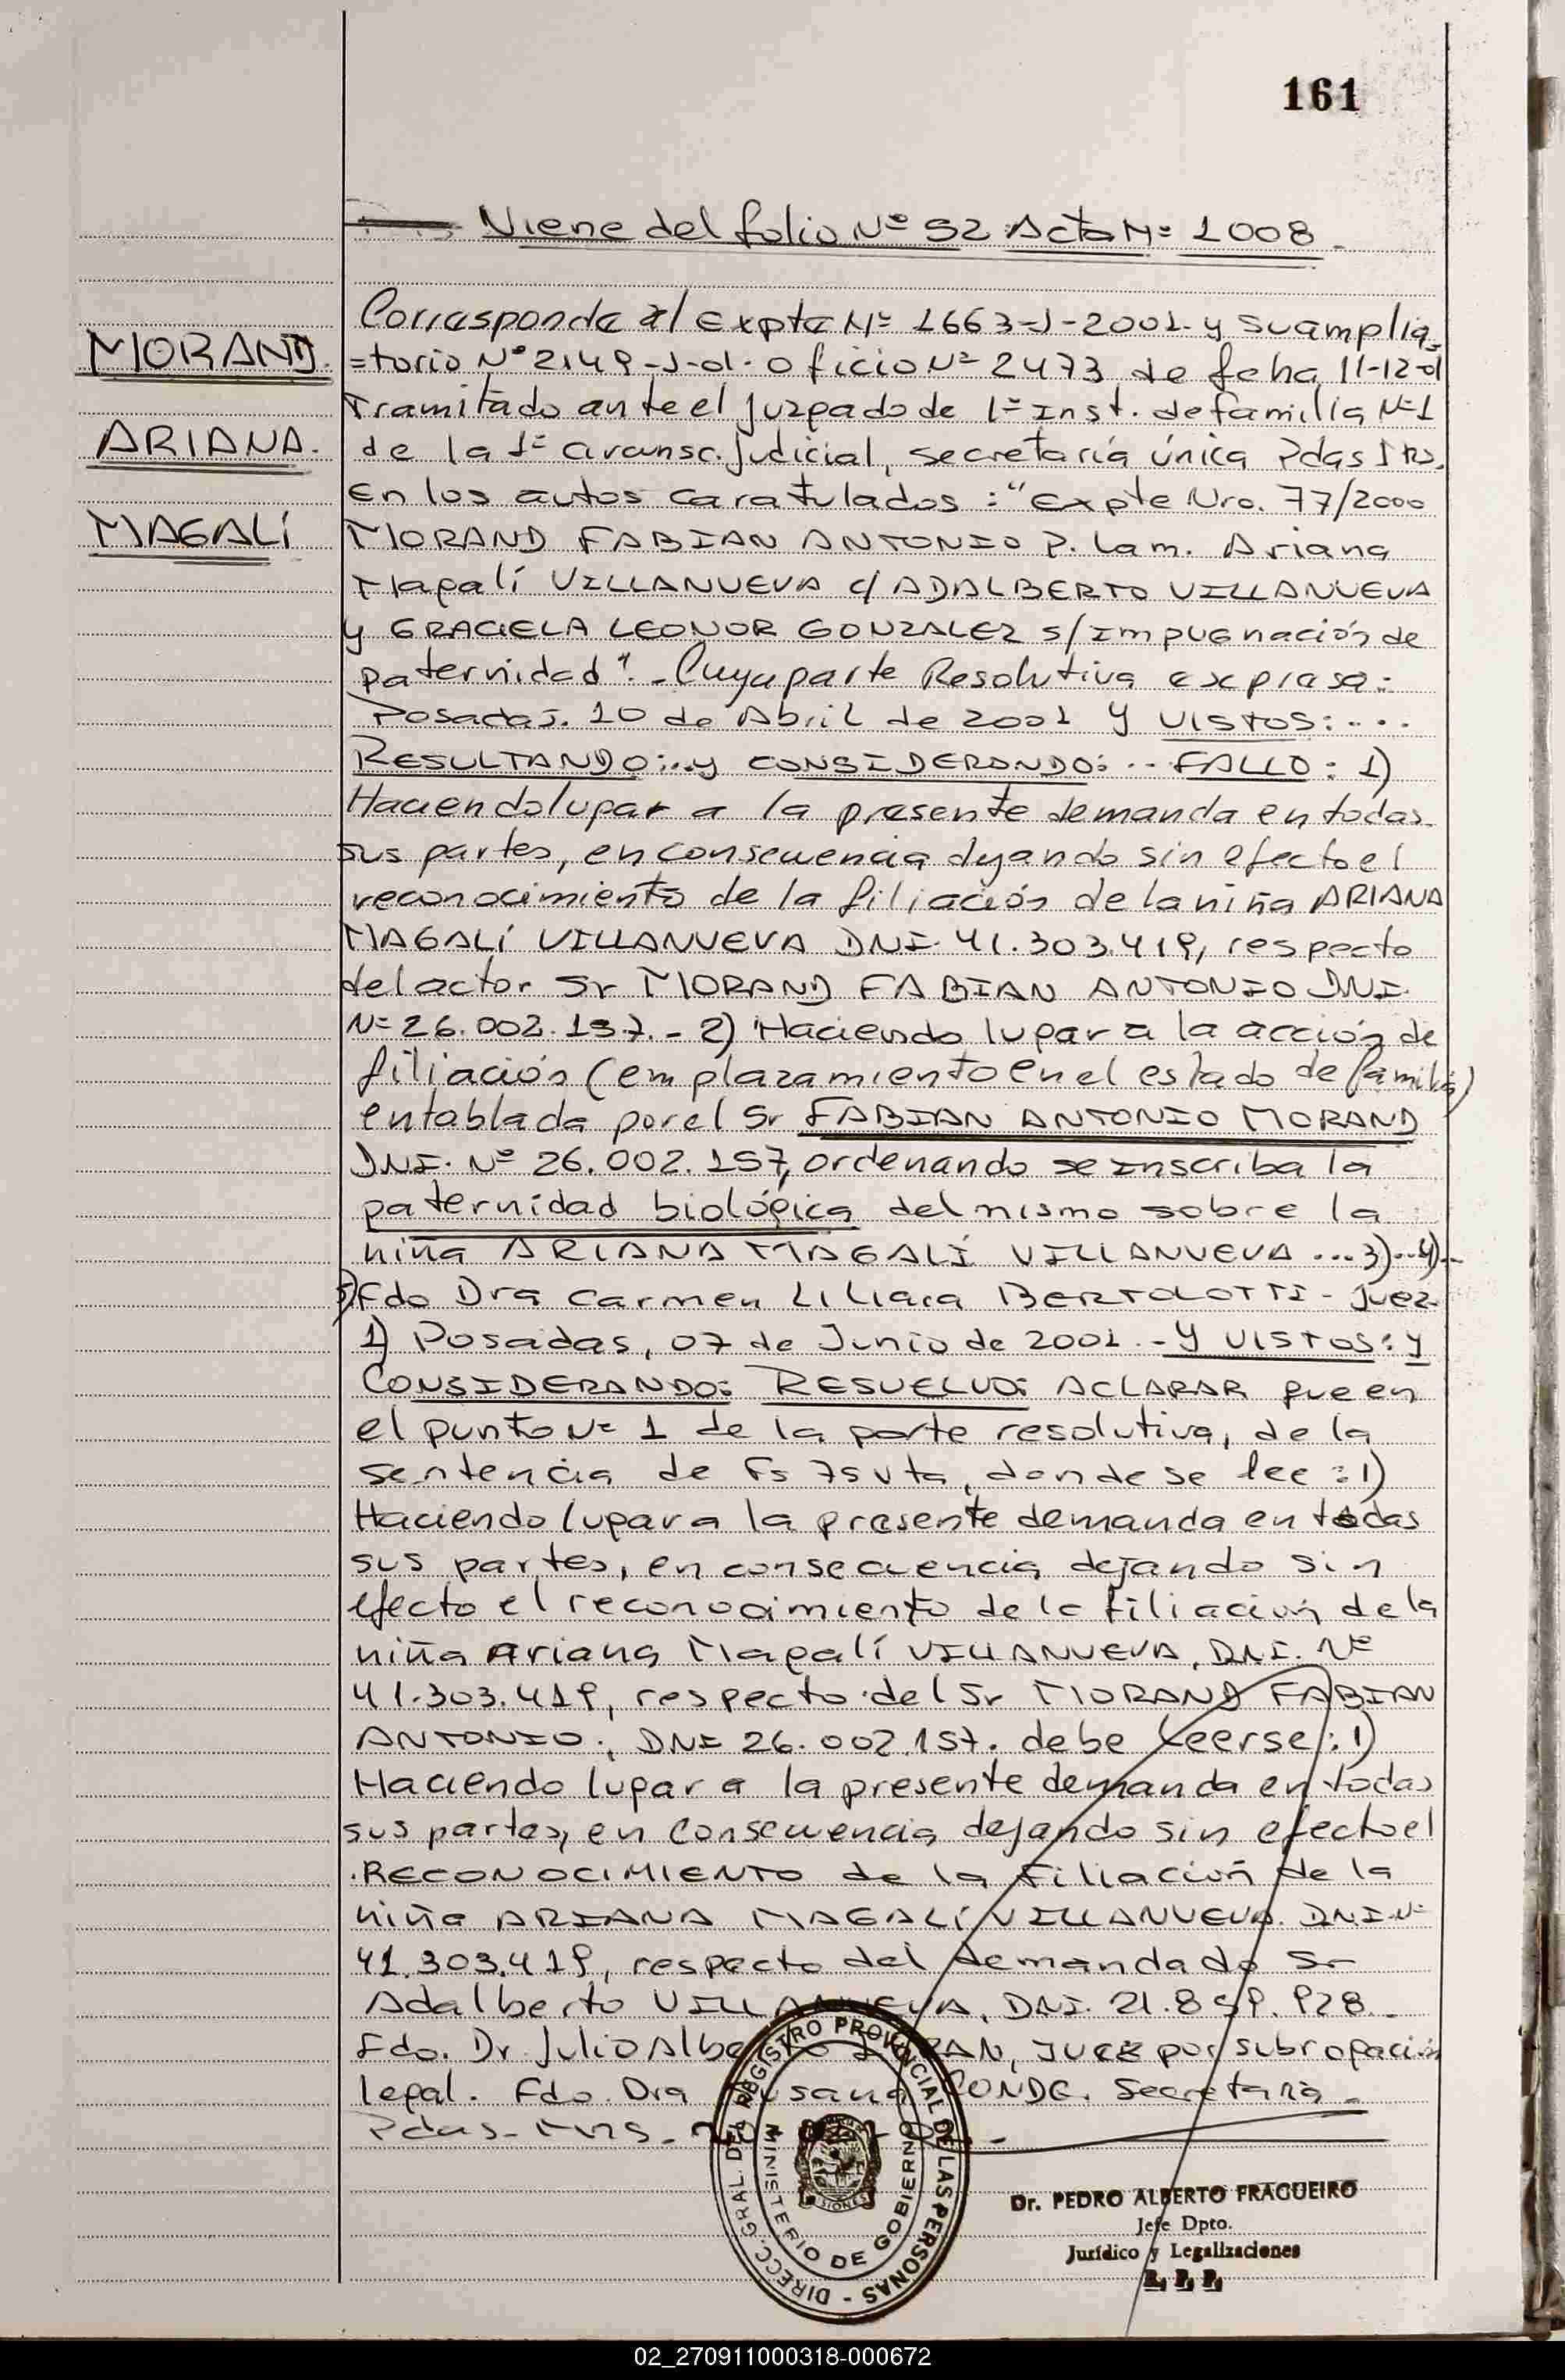 161
Viene del folio Nº 52 Acta Nº 1008
Corresponde al Expte Nº 1663-J-2001- y su amplia
=torio Nº 2149-J-01. Oficio Nº 2473 de feha 11-12-01
MORAND.
Tramitado ante el juzgado de 1º Inst. de familia Nº 1
ARIANA.
de la 1º circunsc. judicial, secretaría única Pdas Mns.
En los autos caratulados: "Expte Nro. 77/2000
MAGALÍ
MORAND FABIAN ANTONIO P. la m. Ariana
Magalí VILLANUEVA c/ ADALBERTO VILLANUEVA
y GRACIELA LEONOR GONZALEZ s/ impugnación de
paternidad". Cuya parte Resolutiva expresa:
Posadas. 10 de Abril de 2001 Y VISTOS:....
RESULTANDO:..y CONSIDERANDO:.. FALLO: 1)
Haciendo lugar a la presente demanda en todas
sus partes, en consecuencia dejando sin efecto el
reconocimiento de la filiación de la niña ARIANA
MAGALÍ VILLANUEVA DNI. 41.303.419, respecto
del actor Sr MORAND FABIAN ANTONIO DNI.
Nº 26.002.157.- 2) Haciendo lugar a la acción de
filiación (emplazamiento en el estado de familia)
entablada por el Sr FABIAN ANTONIO MORAND
DNI. Nº 26.002.157, ordenando se inscriba la
paternidad biológica del mismo sobre la
niña ARIANA MAGALÍ VILLANUEVA ...3)..4)..
5) Fdo Dra Carmen Liliana BERTOLOTTI - Juez
1) Posadas, 07 de Junio de 2001.- Y VISTOS: y
CONSIDERANDO: RESUELVO: ACLARAR que en
el punto Nº 1 de la parte resolutiva, de la
sentencia de Fs 75 vta, donde se lee: 1)
Haciendo lugar a la presente demanda en todas
sus partes, en consecuencia dejando sin
efecto el reconocimiento de la filiación de la
niña Ariana Magalí VILLANUEVA, DNI. Nº
41.303.419, respecto del Sr MORAND FABIAN
ANTONIO, DNI 26.002.157. debe leerse: 1)
Haciendo lugar a la presente demanda en todas
sus partes, en consecuencia dejando sin efecto el
RECONOCIMIENTO de la Filiación de la
niña ARIANA MAGALÍ VILLANUEVA. DNI Nº
41.303.419, respecto del demandado Sr
Adalberto VILLANUEVA, DNI. 21.859.928.
Fdo. Dr. Julio Alberto , JUEZ por subrogación
legal. Fdo. Dra Susana CONDE. Secretaria.
Pdas- Mns.
DIRECC. GRAL. DEL REGISTRO PROVINCIAL DE LAS PERSONAS -
MINISTERIO DE GOBIERNO
MISIONES
Dr. PEDRO ALBERTO FRAGUEIRO
Jefe Dpto.
Jurídico y Legalizaciones
R. P. P.
02_270911000318-000672